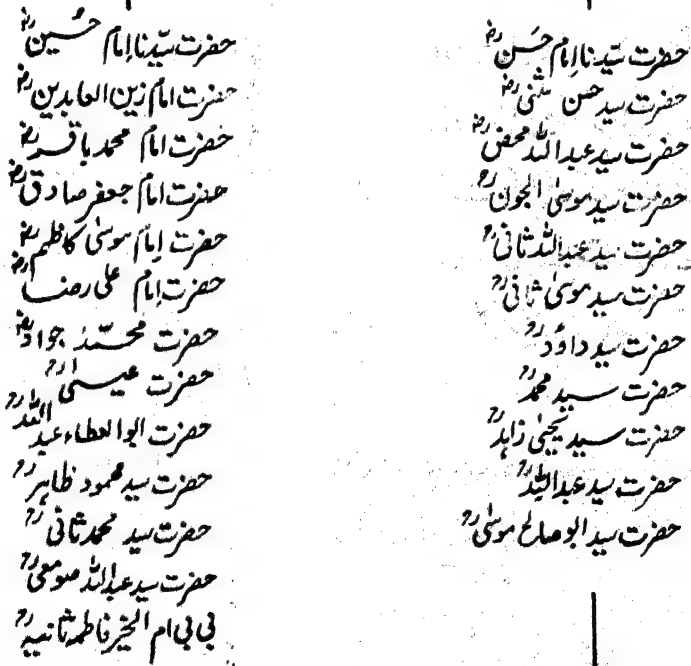 حضرت سیّدنا امام حَسن رضؓ
حضرت سید حسن مثنیٰ رضؓ
حضرت سید عبداللہ محض رضؓ
حضرت سید موسیٰ الجون رحؒ
حضرت سید عبداللہ ثانی رحؒ
حضرت سید موسیٰ ثانی رحؒ
حضرت سید داؤد رحؒ
حضرت سید محمد رحؒ
حضرت سید یحییٰ زاہد رحؒ
حضرت سید عبداللہ رحؒ
حضرت سید ابو صالح موسیٰ رحؒ
حضرت سیّدنا اِمام حُسین رضؓ
حضرت امام زین العابدین رضؓ
حضرت امام محمد باقر رضؓ
حضرت امام جعفر صادق رضؓ
حضرت اِمام موسیٰ کاظم رضؓ
حضرت اِمام علی رضا رضؓ
حضرت محمّد جواد رضؓ
حضرت عیسیٰ رحؒ
حضرت ابوا لعطاء عبد اللہ رحؒ
حضرت سید محمود طاہر رحؒ
حضرت سید محمد ثانی رحؒ
حضرت سید عبداللہ صومعی رحؒ
بی بی ام الخیر فاطمہ ثانیہ رحؒ